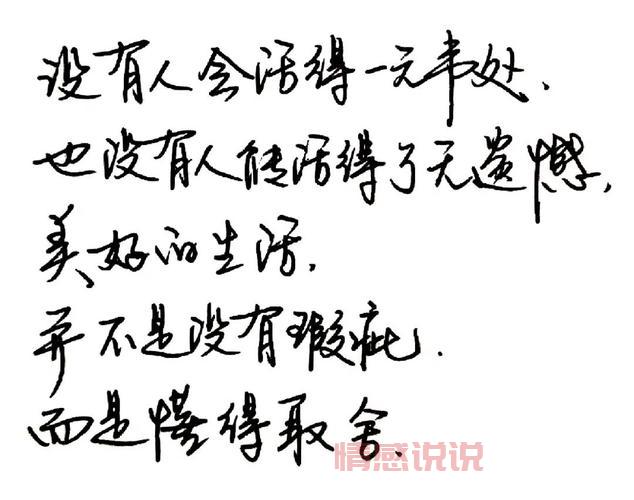 没有人会活得一无是处,
也没有人能活得了无遗憾,
美好的生活,
并不是没有瑕疵.
而是懂得取舍.
情感说说